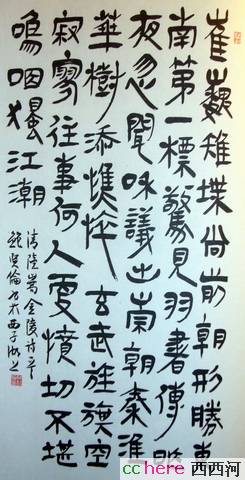 崔巍雉堞尚前朝形勝東
南第一標驚見羽書傳昨
夜忽聞咊議出南朝秦淮
華樹添憔悴玄武旌旗空
寂寥往事何人更憤切不堪
嗚咽獨江潮
清陸嵩金陵詩
鮑賢倫書於西子湖上
cchere 西西河